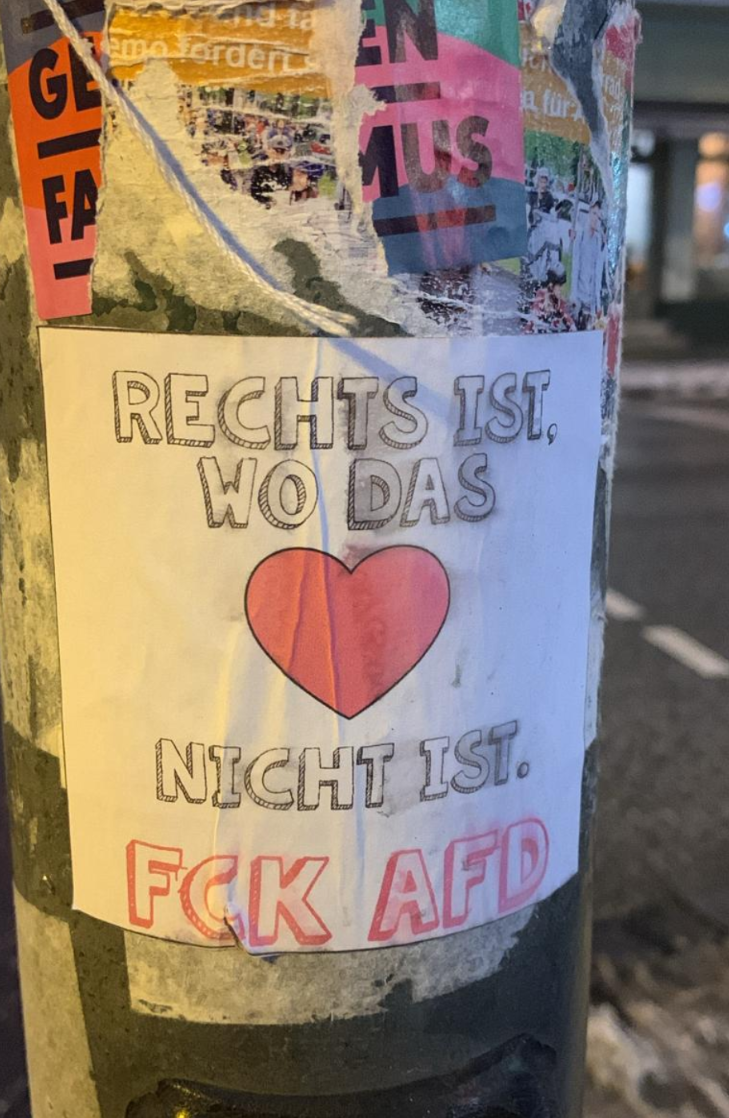 GE
FA
EN
MUS
emo fordert
a für
RECHTS IST,
WO DAS
NICHT IST.
FCK AFD